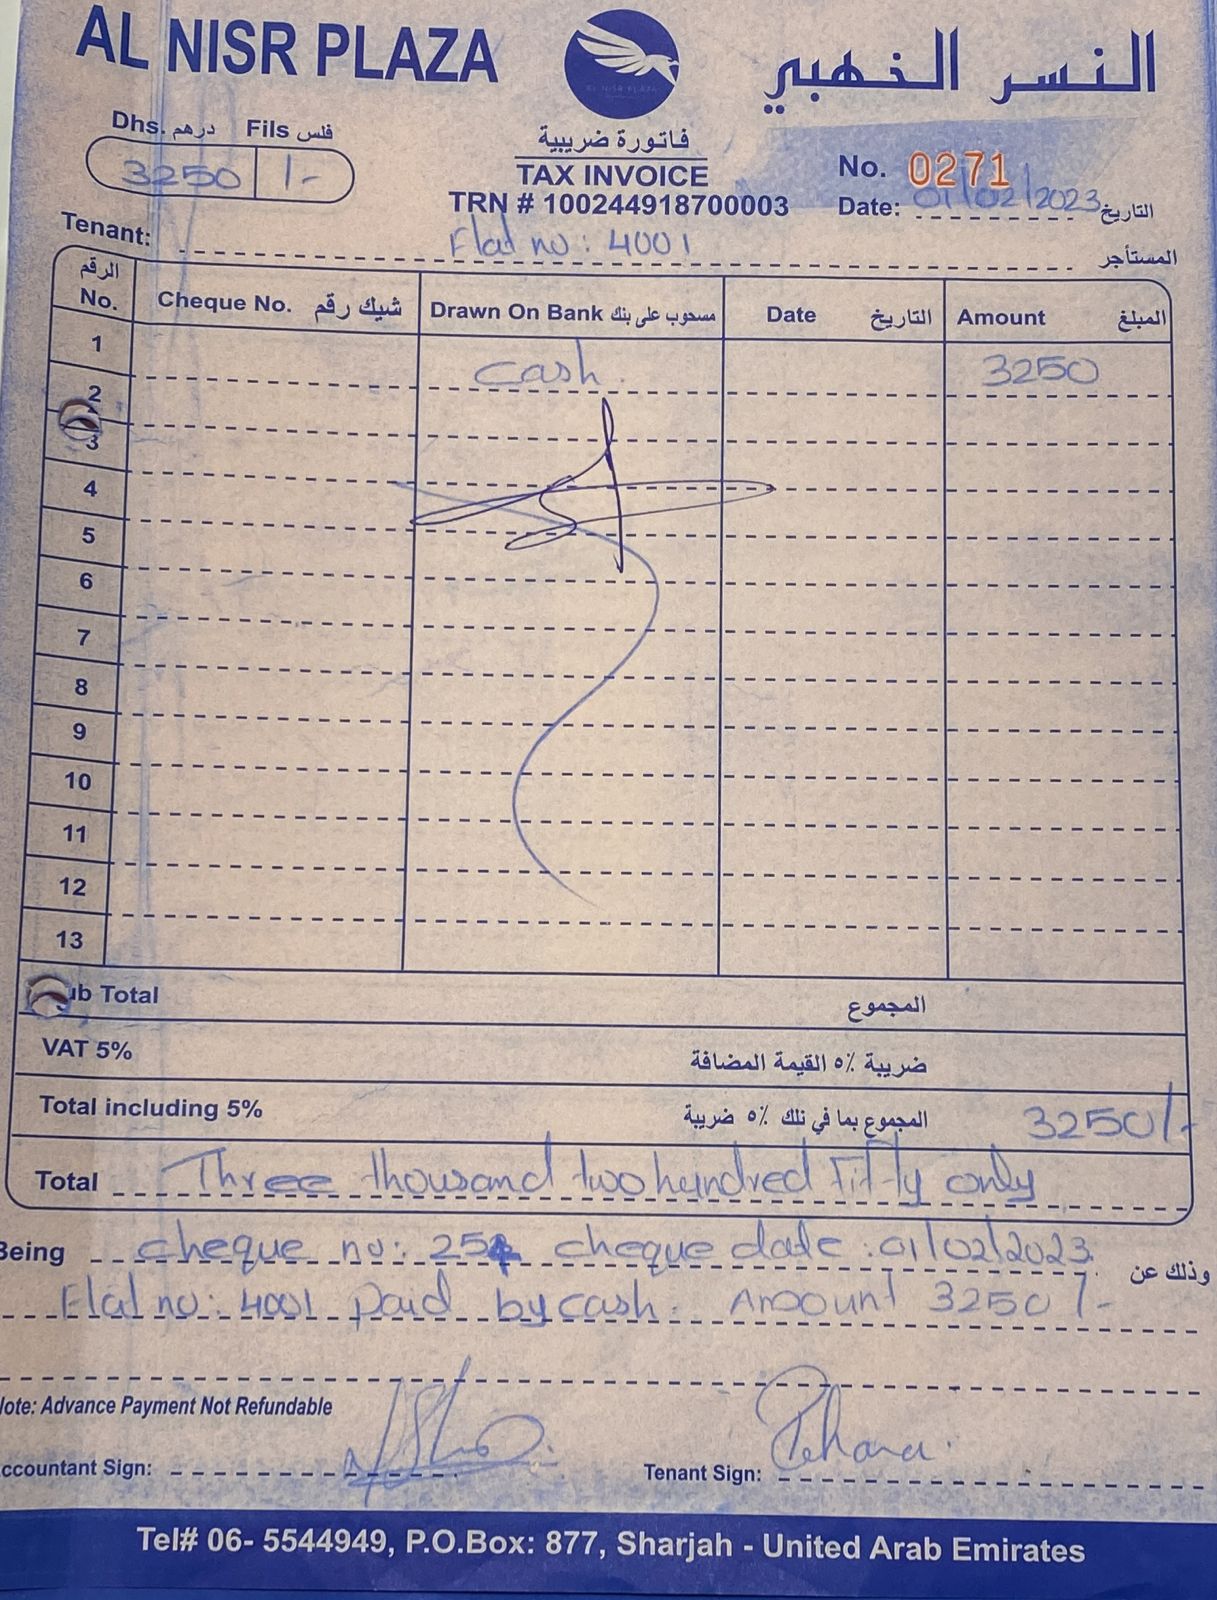 AL NISR PLAZA
AL NISR PLAZA
النسر الخهبي
Dhs. درهم Fils فلس
3250 1-
فاتورة ضريبية
TAX INVOICE
TRN # 100244918700003
No. 0271
Date: 01/02/2023 التاريخ
Tenant: Flat no: 4001 المستأجر
الرقم No. Cheque No. شيك رقم Drawn On Bank مسحوب على بنك Date التاريخ Amount المبلغ
1 cash. 3250
2
3
4
5
6
7
8
9
10
11
12
13
ub Total المجموع
VAT 5% ضريبة ٥٪ القيمة المضافة
Total including 5% المجموع بما في تلك ٥٪ ضريبة 3250/-
Total Three thousand two hundred Fifty only
Being cheque no: 25 cheque date: 01/02/2023 وذلك عن
Flat no: 4001 paid by cash. Amount 3250/-
Note: Advance Payment Not Refundable
ccountant Sign:
Tenant Sign:
Tel# 06- 5544949, P.O.Box: 877, Sharjah - United Arab Emirates